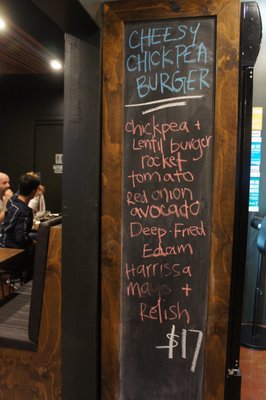 CHEESY
CHICKPEA
BURGER
chickpea +
Lentil burger
rocket
tomato
Red onion
avocado
Deep-Fried
Edam
Harrissa
mayo +
Relish
$17